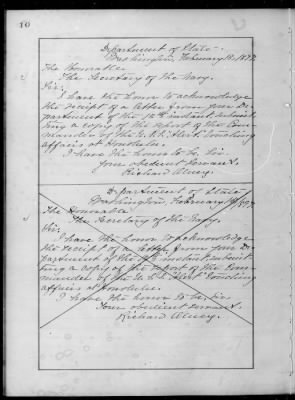 10
Department of State
Washington, February 18, 1897
The Honorable
The Secretary of the Navy.
Sir:
I have the honor to acknowledge
the receipt of a letter from your De-
partment of the instant, submit-
ting a copy of the report of the Com-
mander of the touching
affairs at Honolulu.
I have the honor to be, Sir,
Your obedient servant,
Richard Olney.
Department of State
Washington, February 1897
The Honorable
The Secretary of the Navy.
Sir:
I have the honor to acknowledge
the receipt of a letter from your De-
partment of the instant, submit-
ting a copy of the report of the Com-
mander of the touching
affairs at Honolulu.
I have the honor to be, Sir,
Your obedient servant,
Richard Olney.